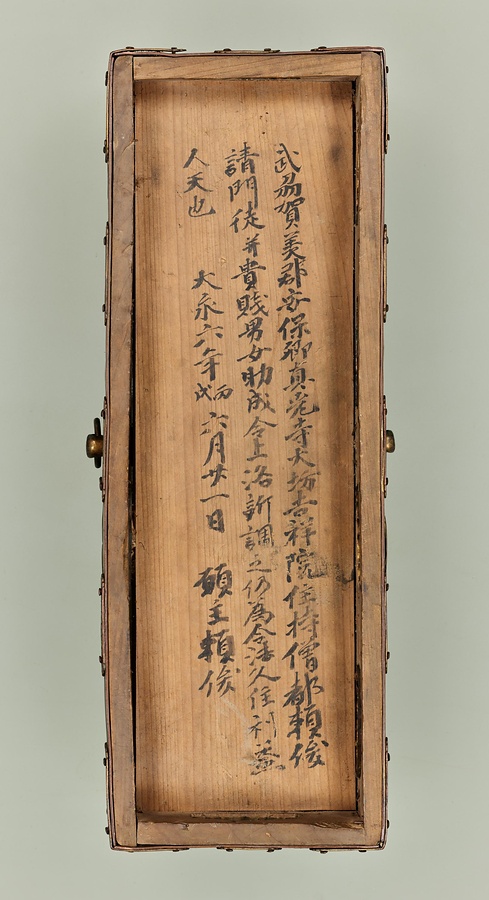 武刕賀美郡安保郷真光寺大坊吉祥院住持僧都頼俊
請門徒并貴賤男女助成令上洛新調之仍為令法久住利益
人天也
大永六年丙戌六月廿一日 願主頼俊